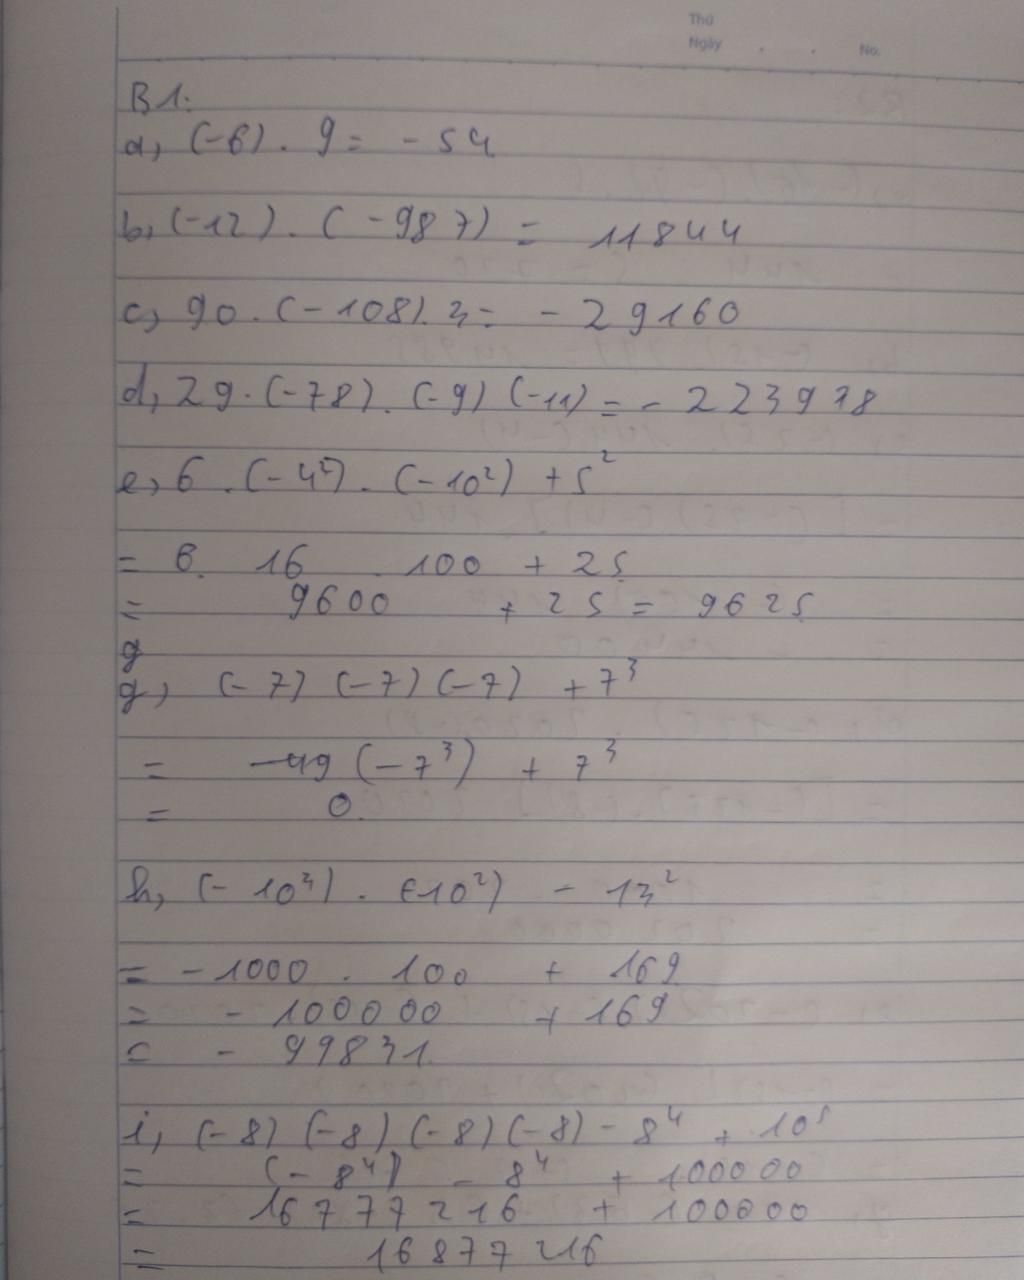 Thứ
Ngày . . No.
B1:
a, (-6) . 9 = - 54
b, (-12) . ( - 987) = 11844
c, 90 . (-108). 3 = - 29160
d, 29 . (-78) . (-9) (-11) = - 223978
e, 6 . (-4²) . (-10²) + 5²
= 6. 16 . 100 + 25
= 9600 + 25 = 9625
g
g, (-7) (-7) (-7) + 7³
= -49 (-7³) + 7³
= 0.
h, (- 10³) . (-10²) - 13²
= -1000 . 100 + 169
= - 100000 + 169
= - 99831
i, (-8) (-8) (-8) (-8) - 8⁴ + 10⁵
= (-8⁴) - 8⁴ + 100000
= 16777216 + 100000
= 16877216